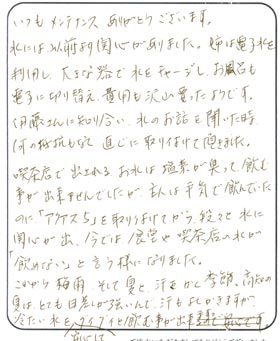 いつもメンテナンスありがとうございます。
水には以前より関心がありました。姉は電子水を
利用し、大きな器で水をチャージし、お風呂も
電子に切り替え、費用も沢山使ったようです。
伊藤さんに知り合い、水のお話を聞いた時
何の抵抗もなく直じに取り付けて頂きました。
喫茶店で出されるお水は塩素が臭って、飲む
事が出来ませんでしたが、主人は平気で飲んでいた
のに「アクアス5」を取り付けてから段々と水に
関心が出、今では食堂や喫茶店の水が
「飲めない」と言う様になりました。
これから梅雨、そして夏と、汗をかく季節、高知の
夏はとても日差しが強いんで、汗もよくかきますが
冷たい水をグイグイと飲む事が出来